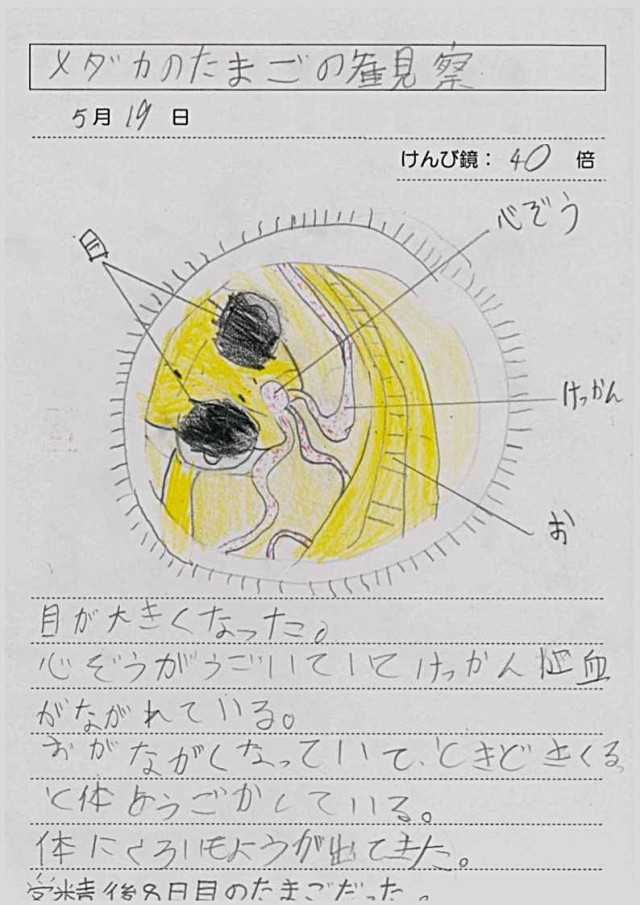 メダカのたまごの観察
5月19日
けんび鏡：40倍
心ぞう
目
けっかん
お
目が大きくなった。
心ぞうがうごいていてけっかんに血
がながれている。
おがながくなっていて、ときどきくる
と体ようごかしている。
体にくろいもようが出てきた。
受精後8日目のたまごだった。